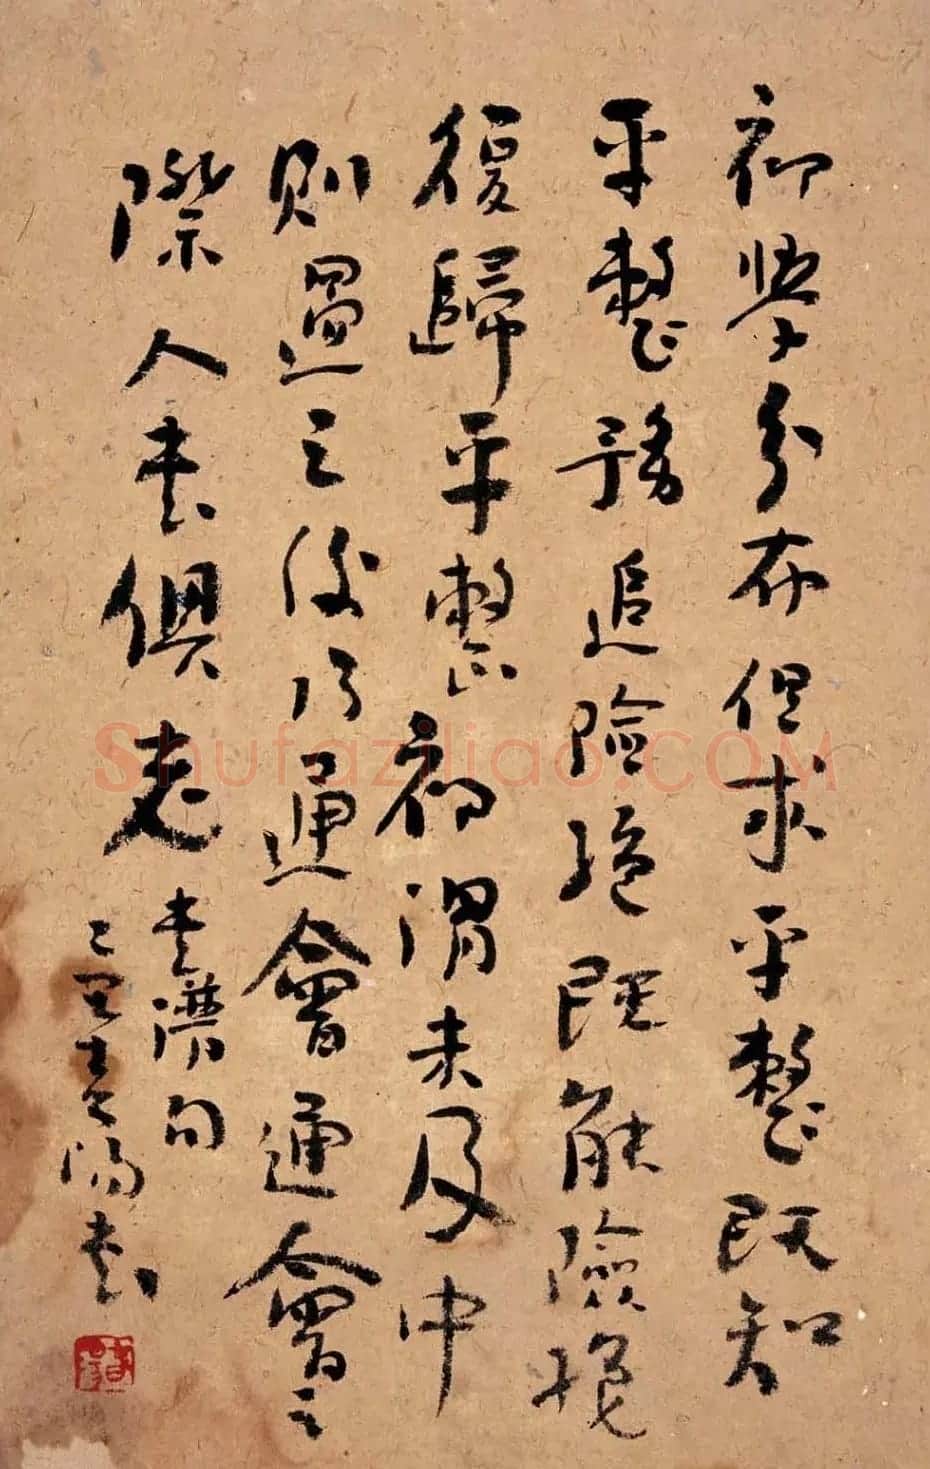 初學分布但求平整既知
平整務追險絕既能險絕
復歸平整初謂未及中
則過之後乃通會通會之
際人書俱老
書譜句
陽書
Shufaziliao.COM